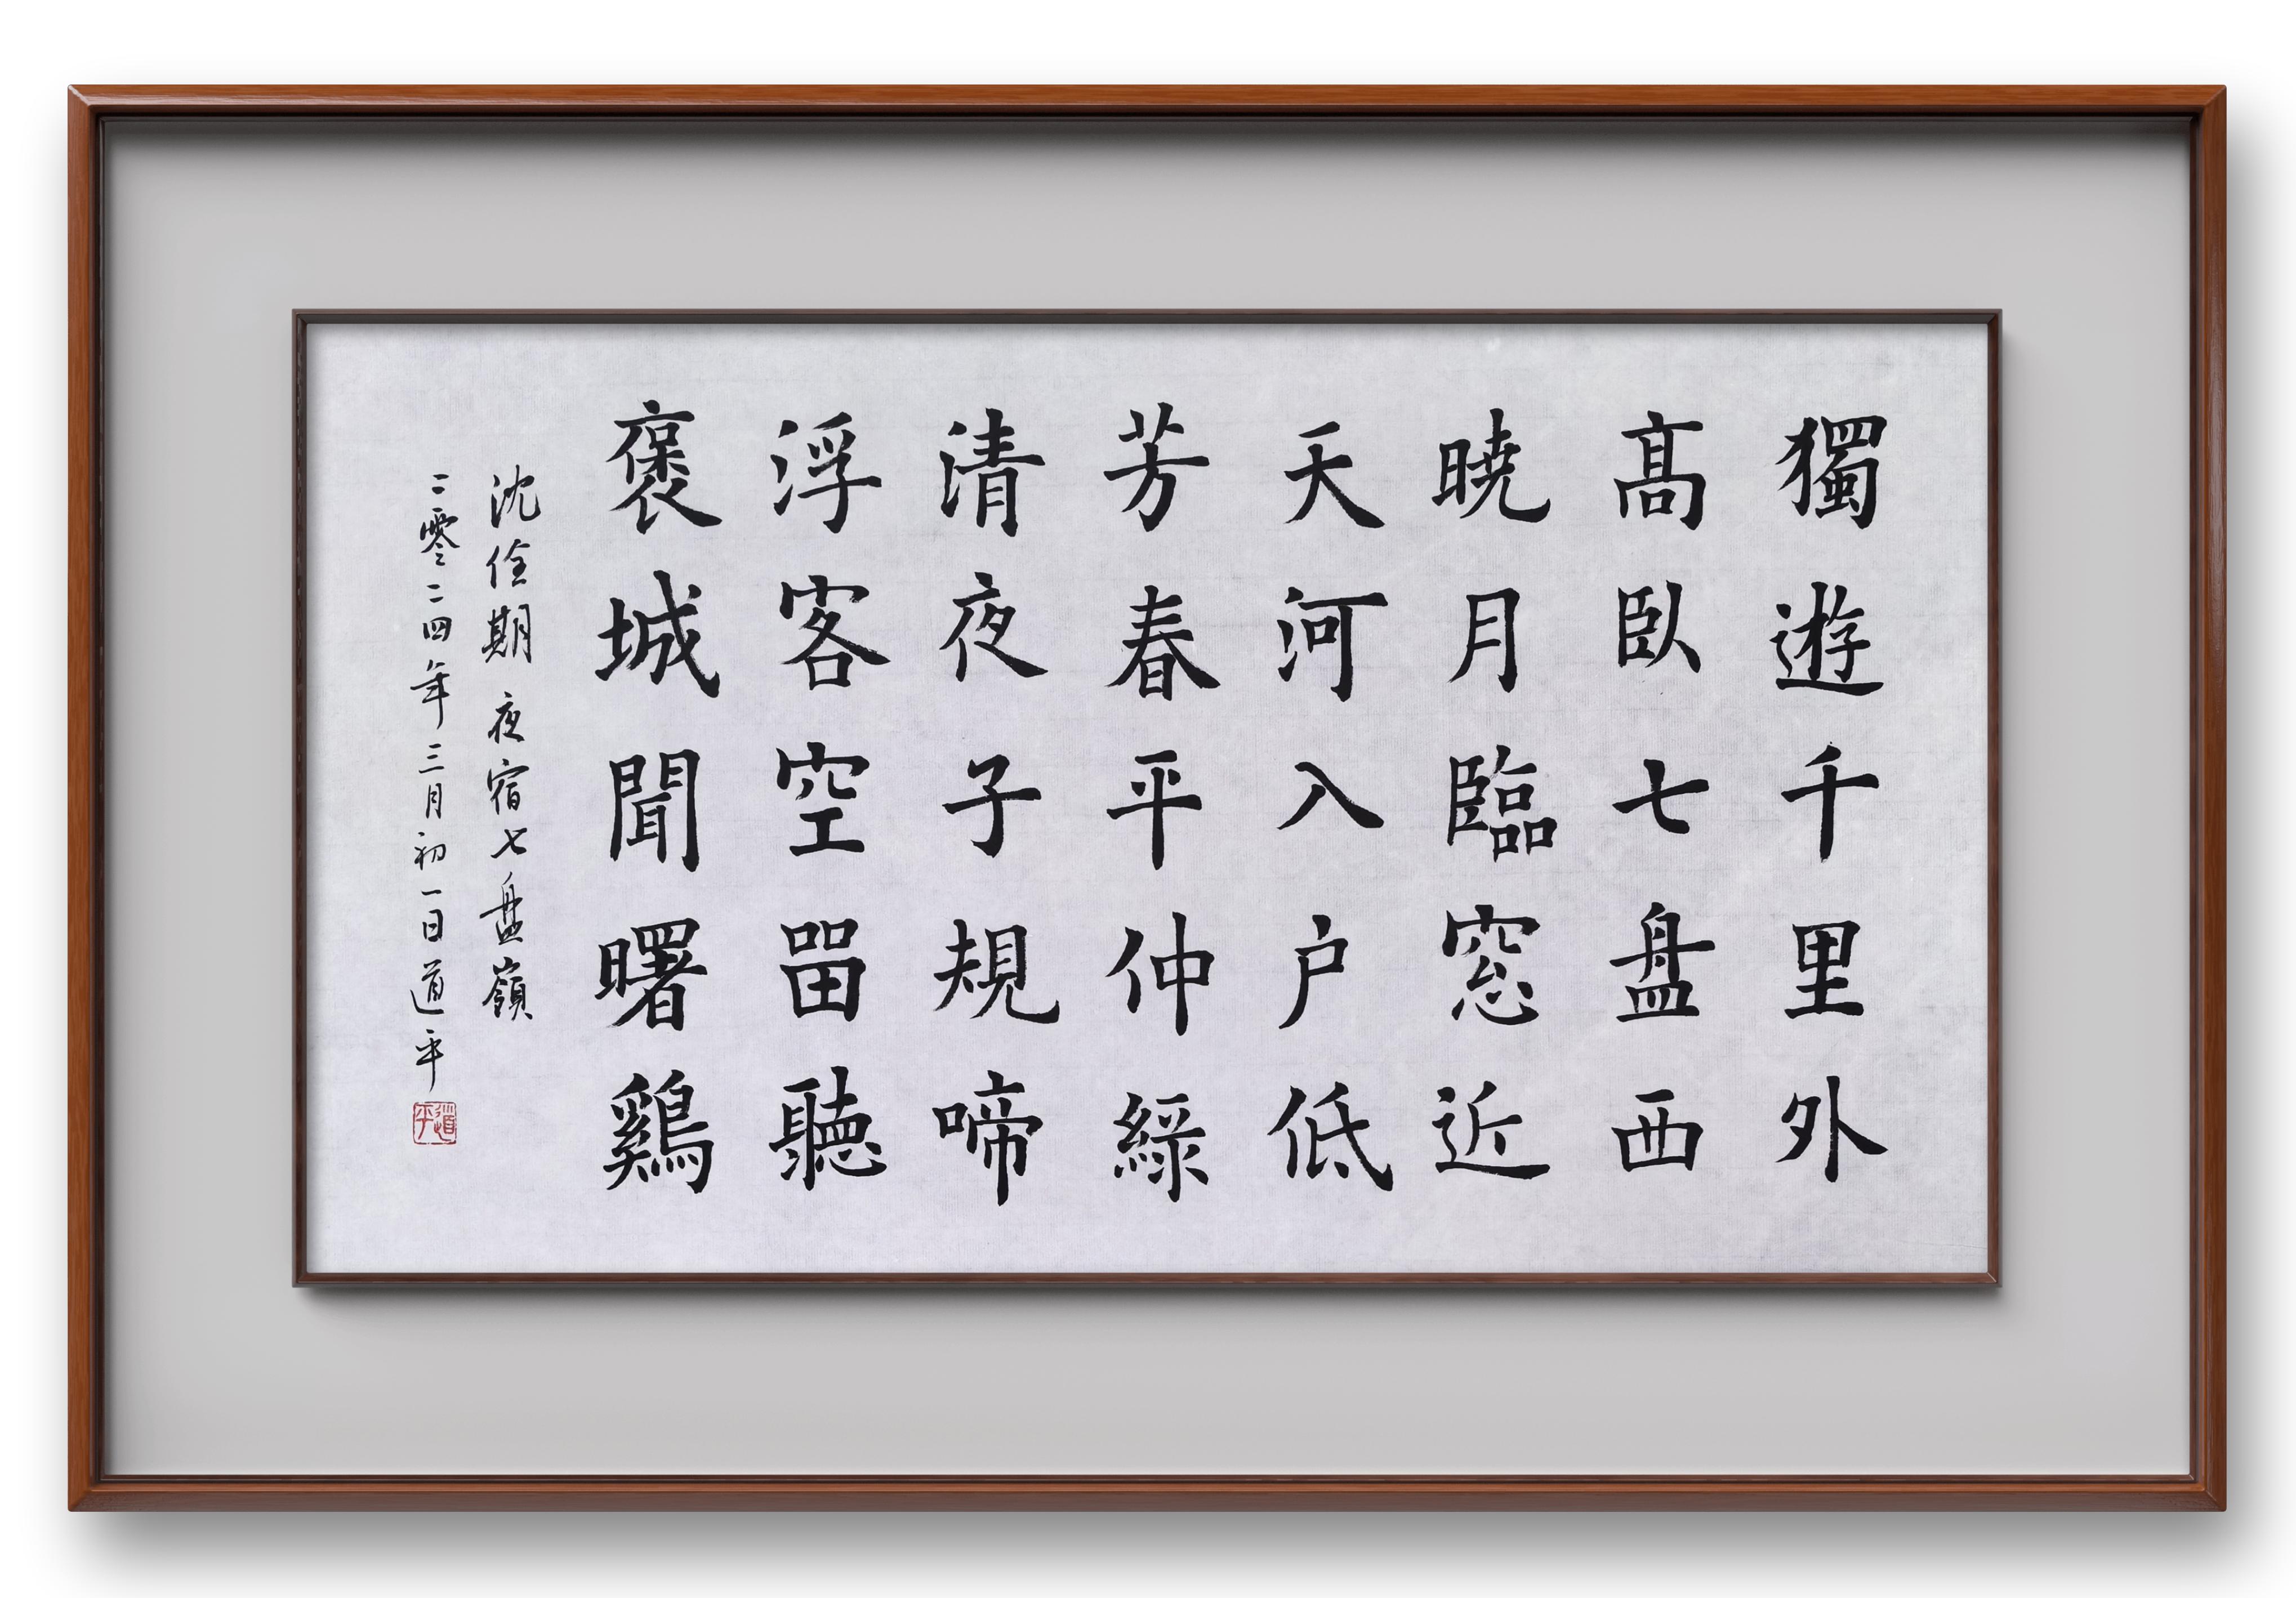 獨遊千里外
高臥七盤西
曉月臨窓近
天河入户低
芳春平仲綠
清夜子規啼
浮客空留聽
褒城聞曙鷄
沈佺期 夜宿七盤嶺
二零二四年三月初一日道平
道平